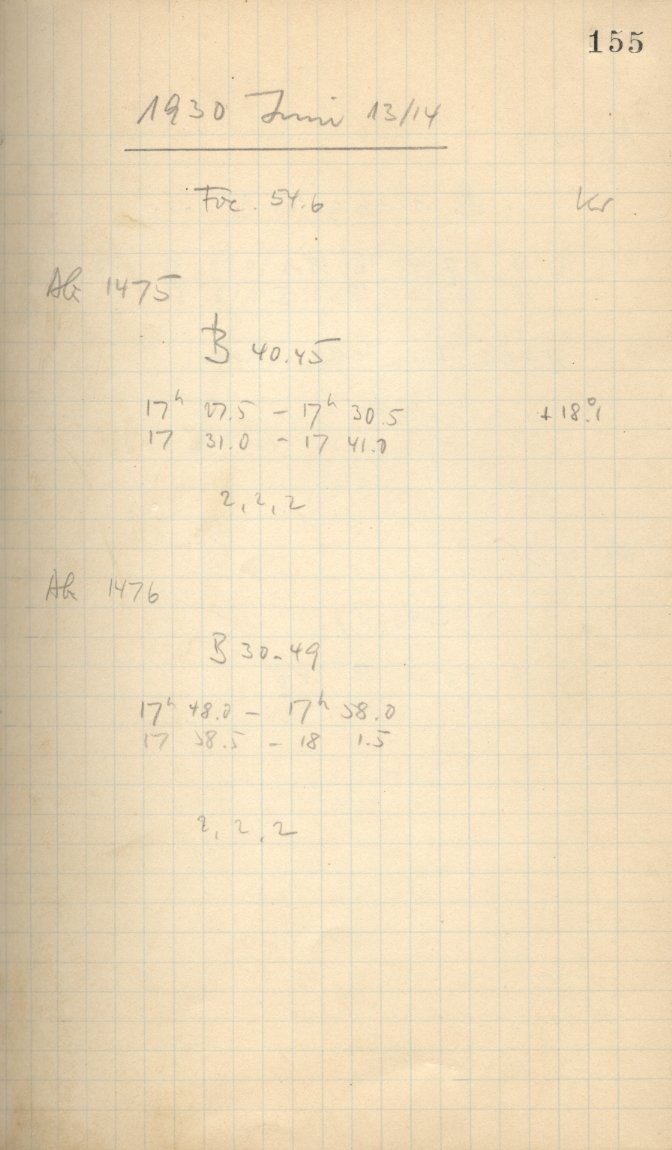 155
1930 Juni 13/14
Foc. 54.6 Kr
AG 1475
B 40.45
17h 27.5 - 17h 30.5 +18.°1
17 31.0 - 17 41.0
2, 2, 2
1476
B 30.49
17h 48.0 - 17h 58.0
17 58.5 - 18 1.5
2, 2, 2